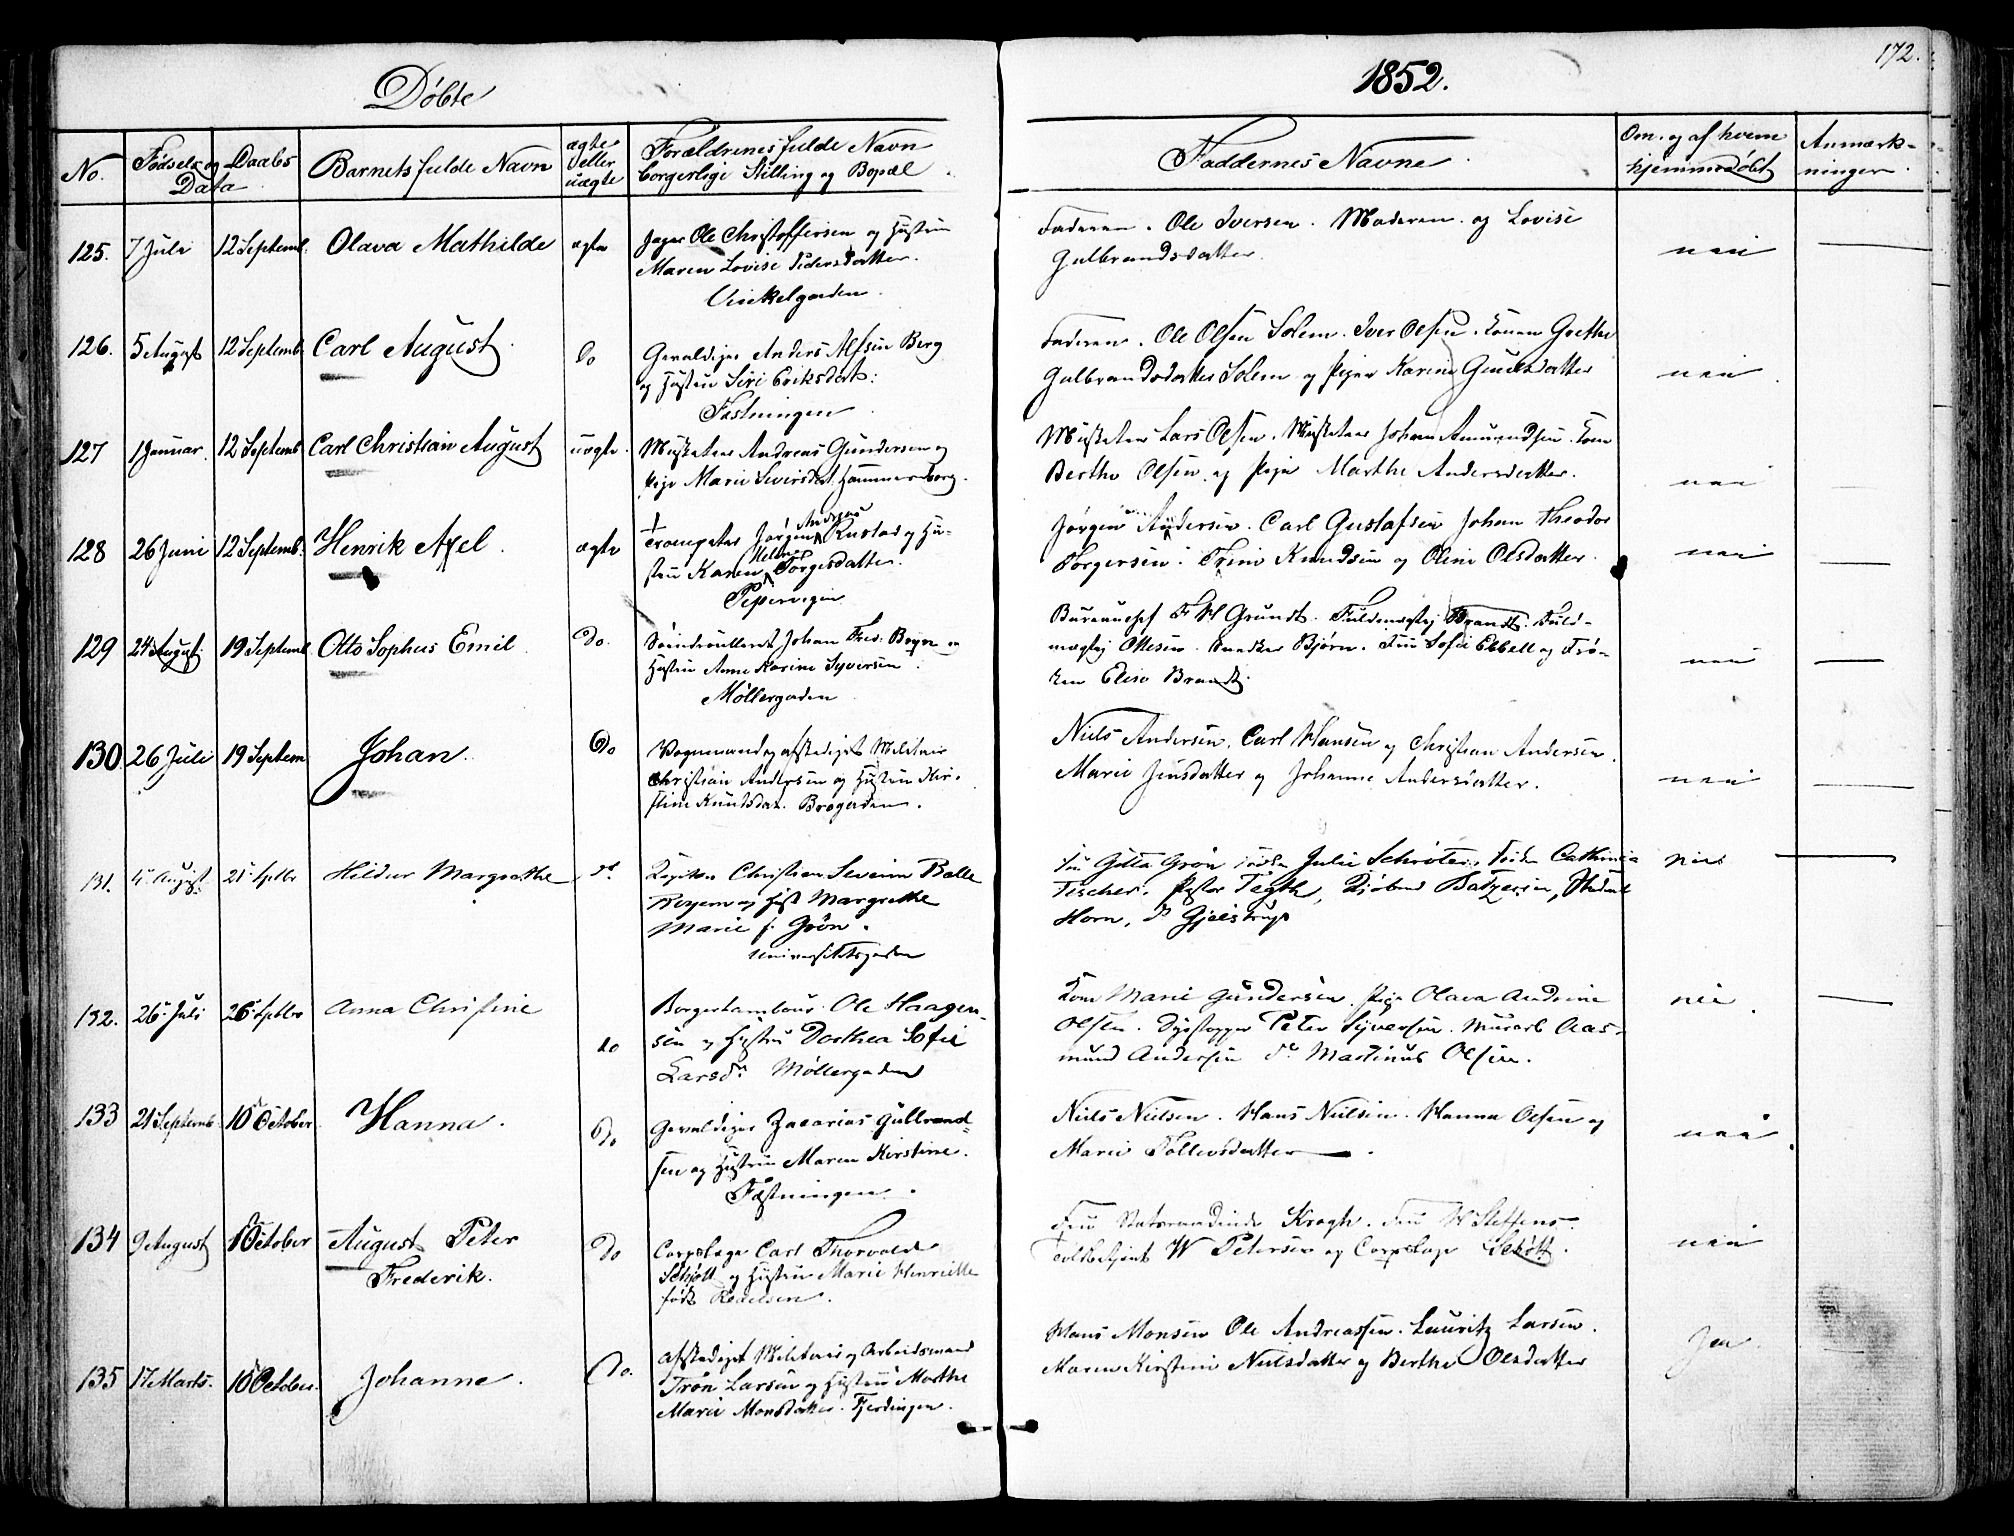 172.
Døbte
1852.
No. Fødsels og Daabs Data Barnets fulde Navn ægte eller uægte Forældrenes fulde Navn borgerlige Stilling og Bopæl Faddernes Navne Om og af hvem hjemmedøbt Anmærkninger.
125. 7 Juli 12 Septemb. Olava Mathilde ægte Jæger Ole Christoffersen og Hustru
Maren Lovise Pedersdatter.
Vinkelgaden.
Faderen. Ole Iversen. Moderen og Lovise
Gulbrandsdatter.
nei
126. 5 August 12 Septemb Carl August Do Gevaldiger Anders Alfsen Berg
og Hustru Siri Eriksdat:
Fæstningen
Faderen. Ole Olsen Solem. Iver Olsen. Konen Grethe
Gulbrandsdatter Solem og Pigen Karine
nei
127 1 Januar. 12 Septemb Carl Christian August uægte. Musketeer Andreas Gundersen og
Pige Marie Siversdat. Hammersborg.
Musketeer Lars Olsen. Musketeer Johan Amundsen. Kone
Berthe Olsen og Pige Marthe Andersdatter.
nei
128 26 Juni 12 Septemb. Henrik Axel ægte Trompeter Jørgen Andreas Rustad og Hu-
stru Karen Helene Torgersdatter.
Pipervigen
Jørgen Andersen. Carl Gustafsen Johan Theodor
Torgersen. Trine Knudsen og Oline Olsdatter.
nei
129 24 August. 19 Septemb Otto Sophus Emil Do. Johan Fred. Boym og
Hustru Anne Karine Syversen.
Møllergaden
Bureauchef F H Grundt. Fuldmægtig Brandt. Fuld-
mægtig Ottesen. Bjørn. Fru Sofie Ebbell og Frø-
ken Elise Brandt.
nei
130 26 Juli 19 Septem Johan. Do Vognmand og afskediget Militær
Christian Andersen og Hustru Kir-
stine Knudsdat. Brogaden.
Niels Andersen. Carl Hansen og Christian Andersen.
Marie Jensdatter og Johanne Andersdatter.
nei
131. 4 August. 21 Septbr Hildur Margrethe do Christian Severin Balle
og Hust Margrethe
Marie f. Grøn.
Universitetsgaden
Fru Gitta Grøn Frøken Julie Schrøter, Frøken Cathinca
Fischer. Pastor Tegth,
Horn, Do Gjelstrup
nei
132. 26 Juli 26 Septbr Anna Christine do Borgertambour Ole Haagen-
sen og Hustru Dorthea Sofie
Larsdr. Møllergaden
Kone Marie Gundersen. Pige Olava Andrine
Olsen. Peter Syversen. Aas-
mund Andersen Do Martinus Olsen.
nei
133 21 Septemb 10 October Hanna. Do Gevaldiger Zacarias Gulbrand-
sen og Hustru Maren Kirstine.
Fæstningen.
Niels Nielsen. Hans Nielsen. Hanna Olsen og
Marie Tollevsdatter.
nei
134 9 August 10 October August Peter
Frederik.
Do Corpslæge Carl Thorvald
Schjøtt og Hustru Marie Henriette
født
Fru Statsraadinde Krogh. Fru W Steffens.
Toldbetjent W Petersen og Corpslæge Schøtt.
nei
135 17 Marts. 10 October. Johanne. Do. Afskediget Militær og Arbeidsmand
Trøn Larsen og Hustru Marthe
Marie Monsdatter. Fjerdingen.
Hans Monsen Ole Andreassen. Lauritz Larsen.
Maren Kirstine Nielsdatter og Berthe Olsdatter
Ja.